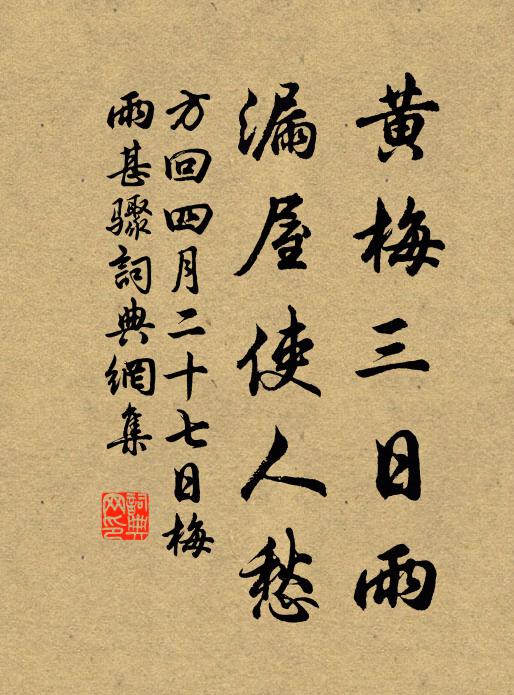 黄梅三日雨
漏屋使人愁
方回四月二十七日梅
雨甚骤詞典網集
詞典
网印